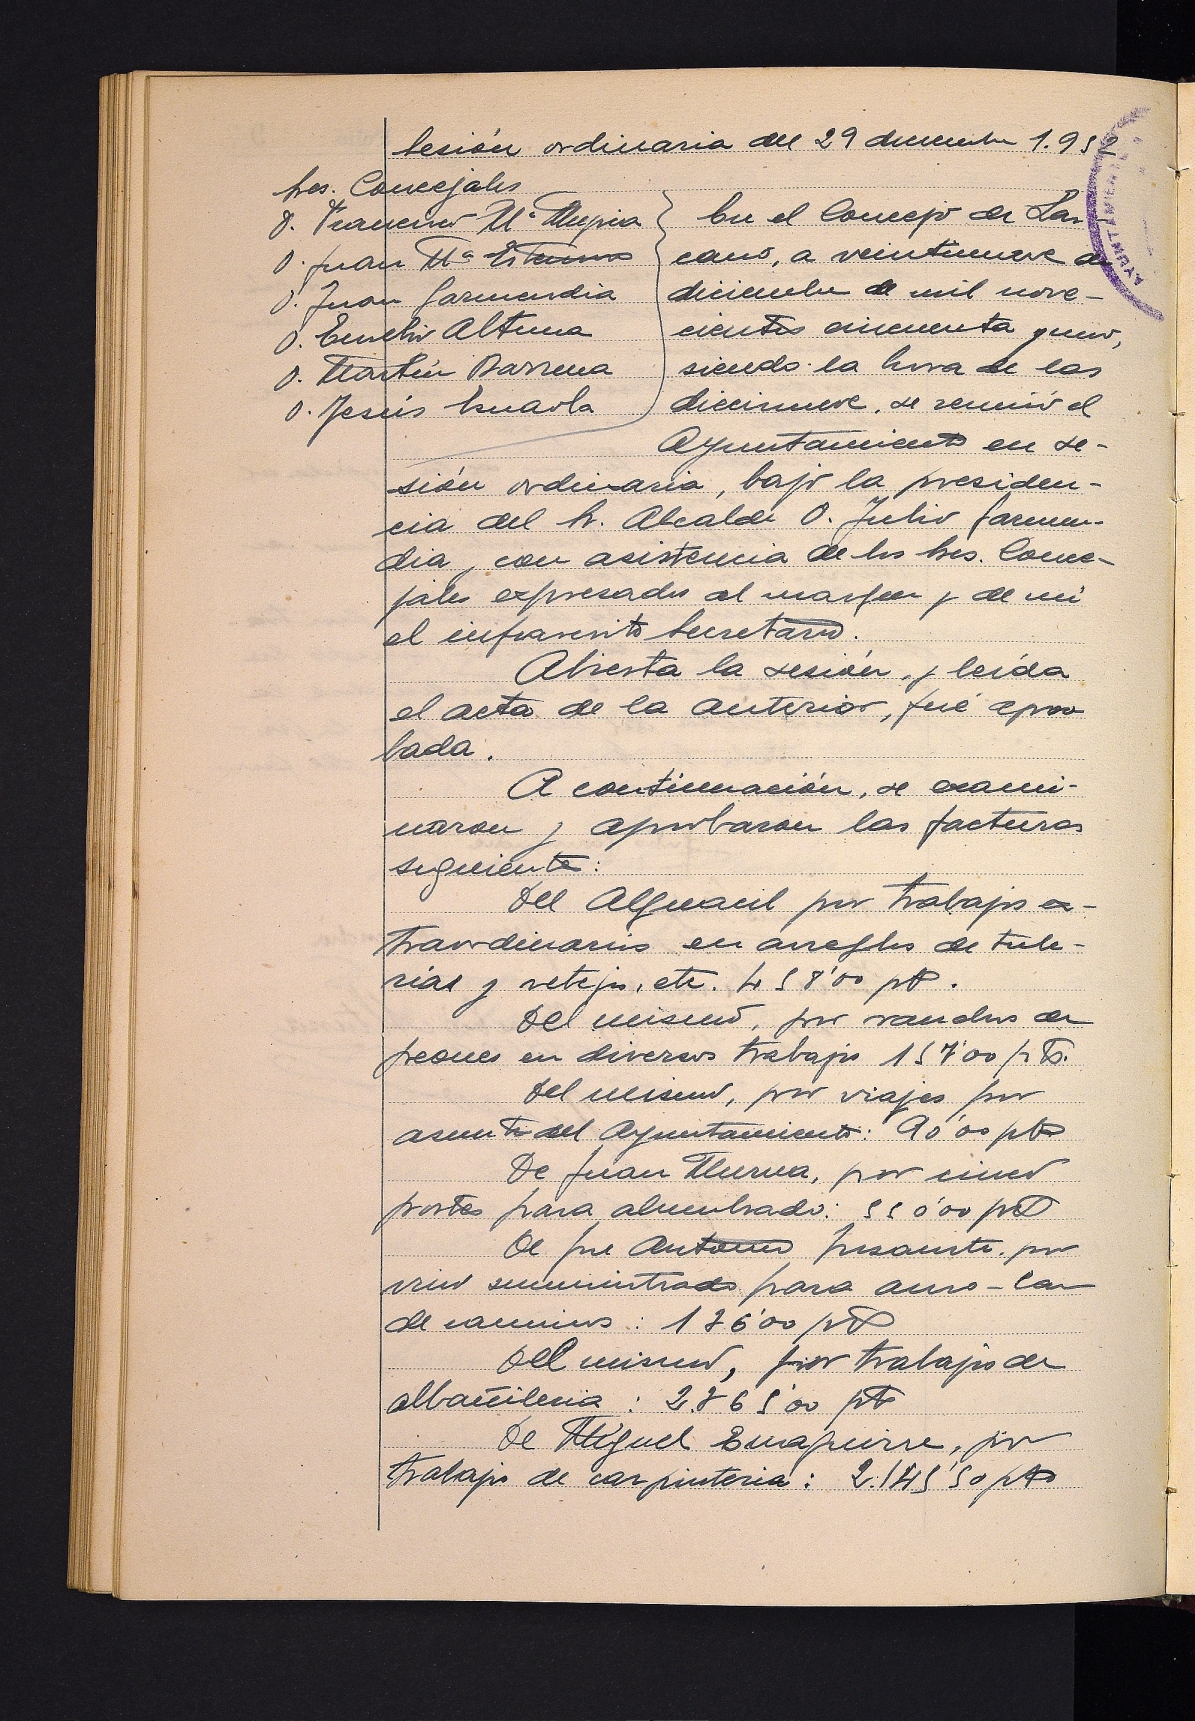 Sesión ordinaria del 29 diciembre 1.952
Sres. Concejales
D. Francisco Mª Mujica
D. Juan Mª
D. Juan Garmendia
D. Eusebio Altuna
D. Martín Barrena
D. Jesús
En el Concejo de Laz-
cano, a veintinueve de
diciembre de mil nove-
cientos cincuenta y uno,
siendo la hora de las
diecinueve, se reunió el
Ayuntamiento en se-
sión ordinaria, bajo la presiden-
cia del Sr. Alcalde D. Julio Garmen-
dia, con asistencia de los Sres. Conce-
jales expresados al margen y de mi
el infrascrito Secretario.
Abierta la sesión, y leída
el acta de la anterior, fué apro
bada.
A continuación, se exami-
naron y aprobaron las facturas
siguiente:
Del Alguacil por trabajos ex-
traordinarios en arreglos de tube-
rías y retejos, etc. 458'00 pts.
Del mismo, por ranchos de
peones en diversos trabajos 157'00 pts.
Del mismo, por viajes por
asuntos del Ayuntamiento: 90'00 pts
De Juan Murua, por cinco
postes para alumbrado: 550'00 pts
De José Antonio por
vino suministrado para auzo-lan
de caminos: 176'00 pts
Del mismo, por trabajos de
albañileria: 2.765'00 pts
De Miguel por
trabajos de carpinteria: 2.145'50 pts
AYUNTAMIENTO